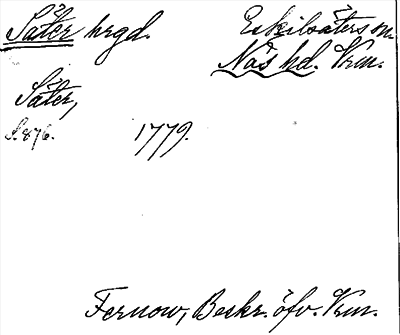 Säter hrgd. Eskilsäters sn.
Näs hd. Vrm.
Säter,
S. 876. 1779.
Fernow, Beskr. öfv. Vrm.